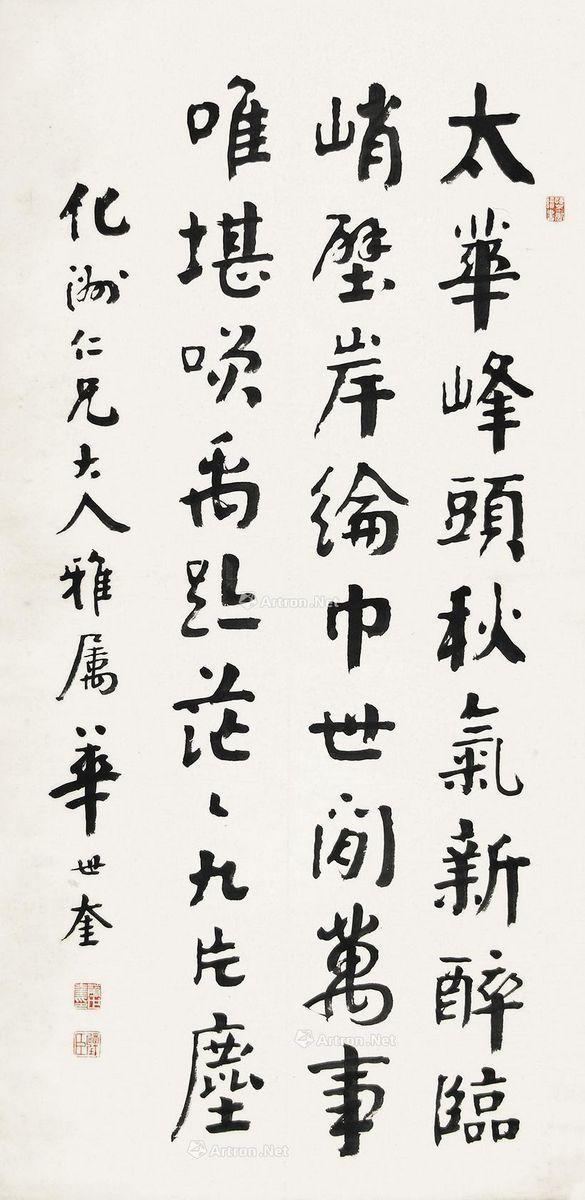 太華峰頭秋氣新醉臨
峭壁岸綸巾世間萬事
唯堪笑禹跡茫〻九片塵
化洲仁兄大人雅属華世奎
Artron.Net
Artron.Net
Artron.Net